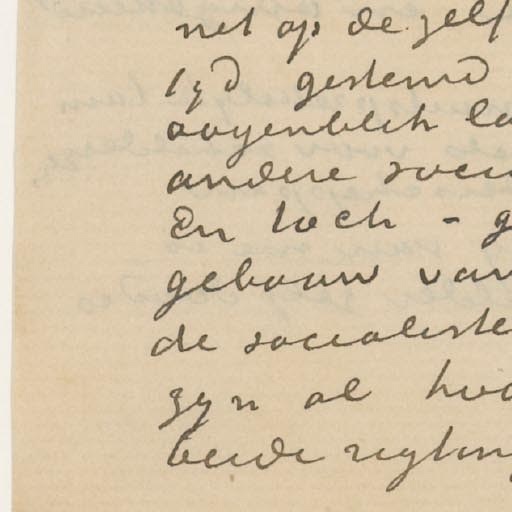 net op de zelf
tyd gestemd
oogenblik la
andere soci
En toch - g
gebouw van
de socialiste
zyn al hoo
beide rigting